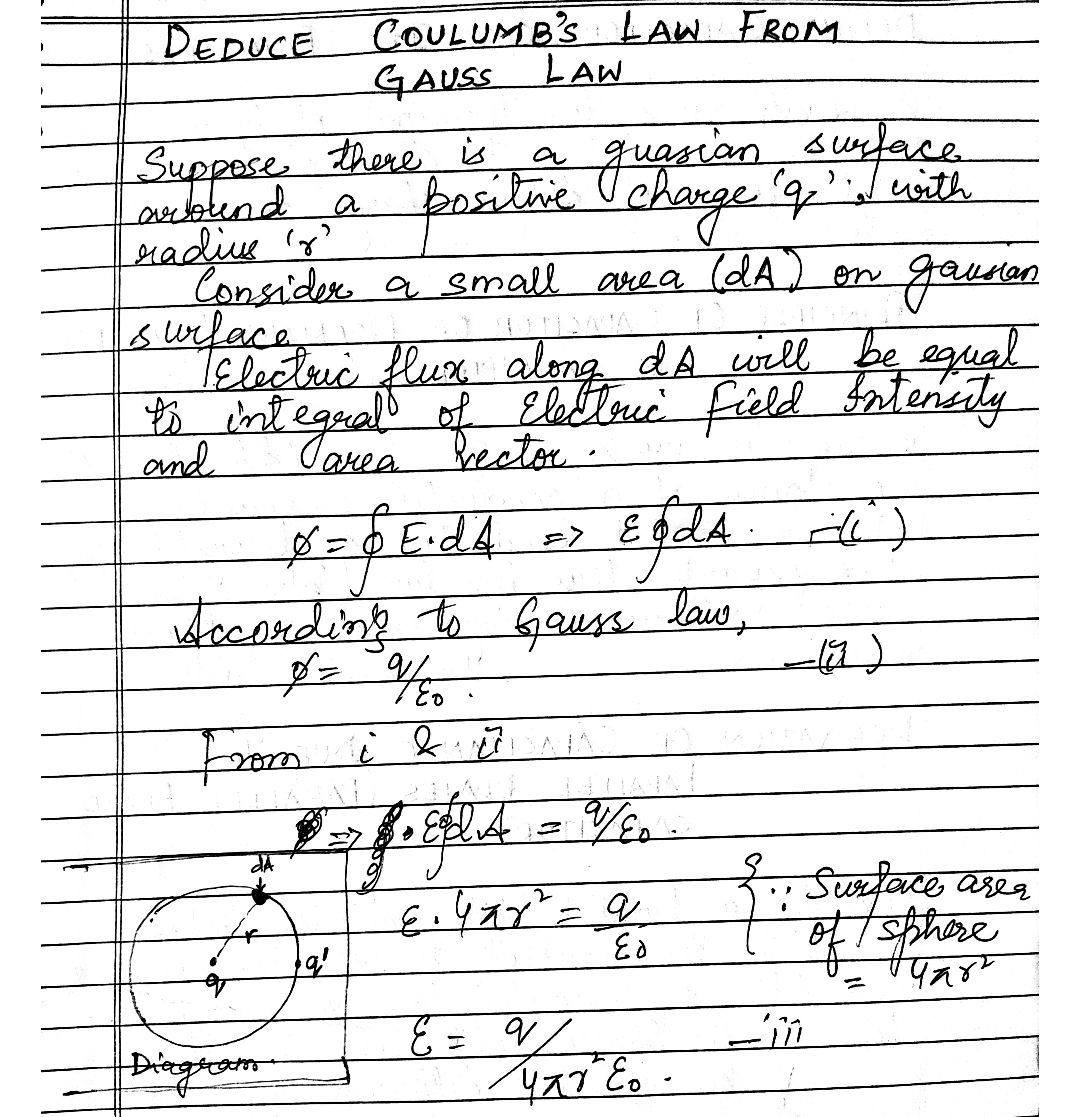 DEDUCE COULUMB'S LAW FROM
GAUSS LAW
Suppose there is a guasian surface
around a positive charge 'q', with
radius 'r'
Consider a small area (dA) on gausian
surface
Electric flux along dA will be equal
to integral of Electric field Intensity
and area vector.
ϕ = ∮ E·dA => E∮dA. —(i)
According to Gauss law,
ϕ = q/ε₀. —(ii)
From i & ii
=> E∮dA = q/ε₀.
E·4πr² = q/ε₀ {∵ Surface area
of sphere
= 4πr²
E = q/4πr²ε₀. —iii
dA
r
q
q'
Diagram.